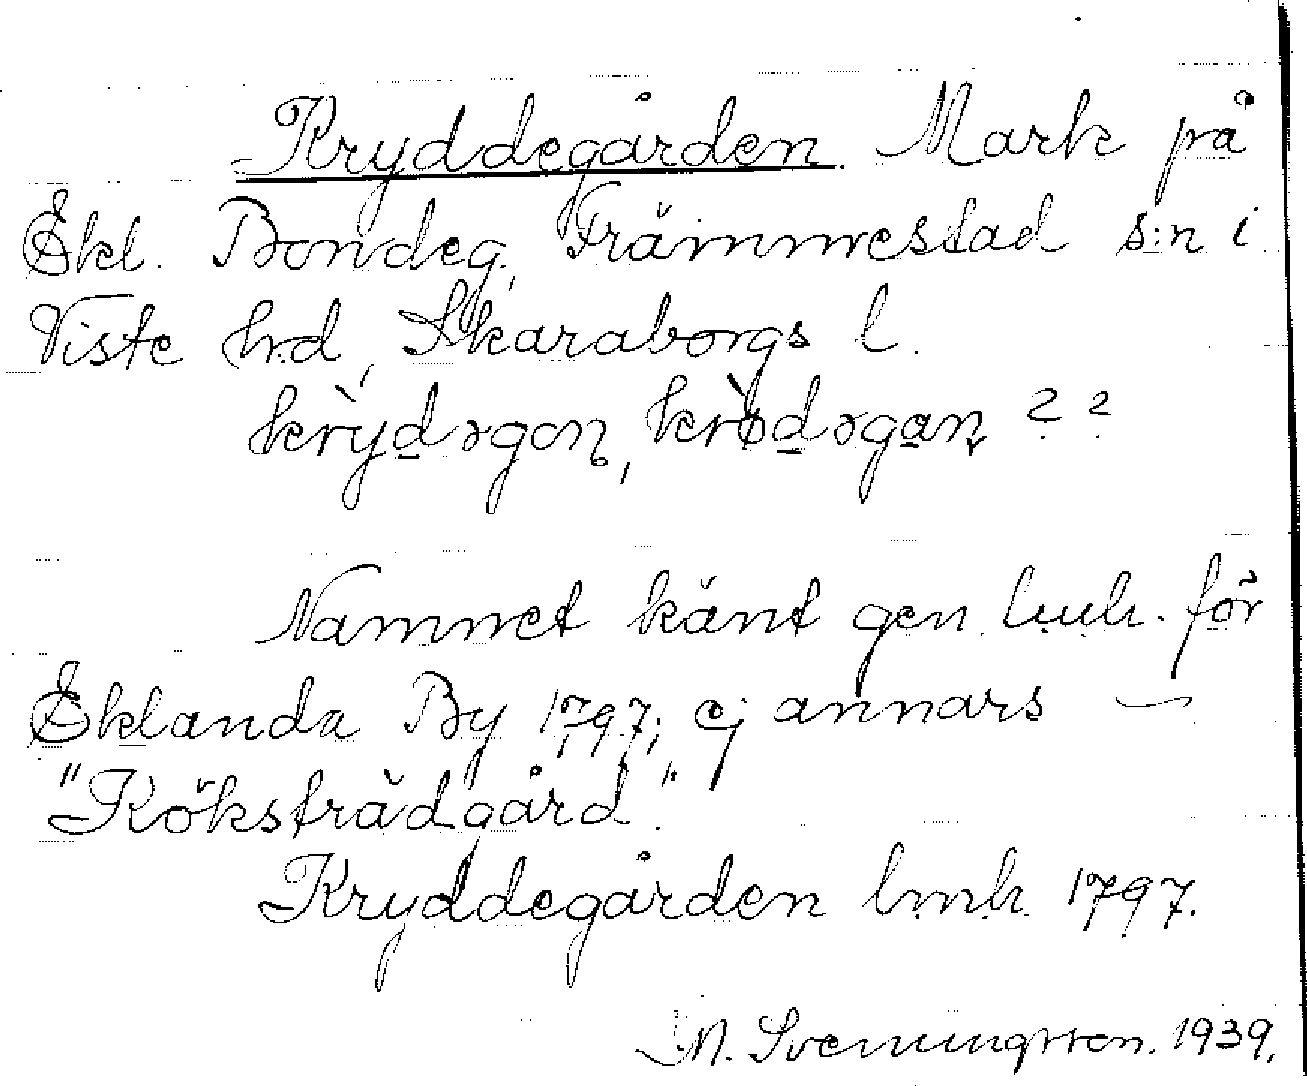 Kryddegården. Mark på
Ekl. Bondeg., Främmestad s:n i
Viste hrd, Skaraborgs l.
krỳdəgɑn, krødəgɑn ? ?
Namnet känt gen. lmh. för
Eklanda By 1797; ej annars —
"Köksträdgård".
Kryddegården lmh. 1797.
N. Svenningsson. 1939.